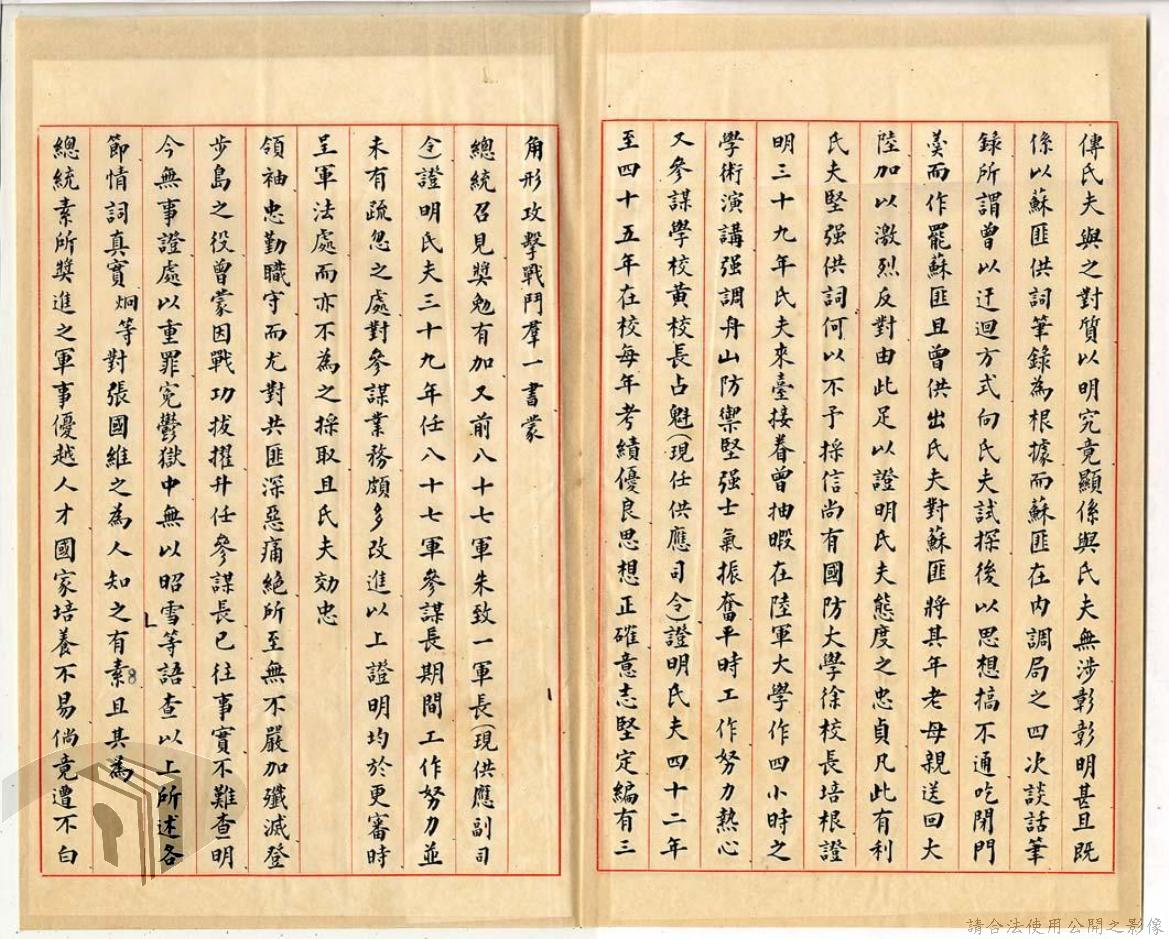 傳氏夫與之對質以明究竟顯係與氏夫無涉彰彰明甚且既
係以蘇匪供詞筆錄為根據而蘇匪在內調局之四次談話筆
錄所謂曾以迂迴方式向氏夫試探後以思想搞不通吃閉門
羹而作罷蘇匪且曾供出氏夫對蘇匪將其年老母親送回大
陸加以激烈反對由此足以證明氏夫態度之忠貞凡此有利
氏夫堅强供詞何以不予採信尚有國防大學徐校長培根證
明三十九年氏夫來臺接眷曾抽暇在陸軍大學作四小時之
學術演講强調舟山防禦堅强士氣振奮平時工作努力熱心
又參謀學校黃校長占魁(現任供應司令)證明氏夫四十二年
至四十五年在校每年考績優良思想正確意志堅定編有三
角形攻擊戰鬥羣一書蒙
總統召見獎勉有加又前八十七軍朱致一軍長(現供應副司
令)證明氏夫三十九年任八十七軍參謀長期間工作努力並
未有疏忽之處對參謀業務頗多改進以上證明均於更審時
呈軍法處而亦不為之採取且氏夫効忠
領袖忠勤職守而尤對共匪深惡痛絕所至無不嚴加殲滅登
步島之役曾蒙因戰功拔擢升任參謀長已往事實不難查明
今無事證處以重罪寃鬱獄中無以昭雪等語查以上所述各
節情詞真實炯等對張國維之為人知之有素且其為
總統素所獎進之軍事優越人才國家培養不易倘竟遭不白
請合法使用公開之影像